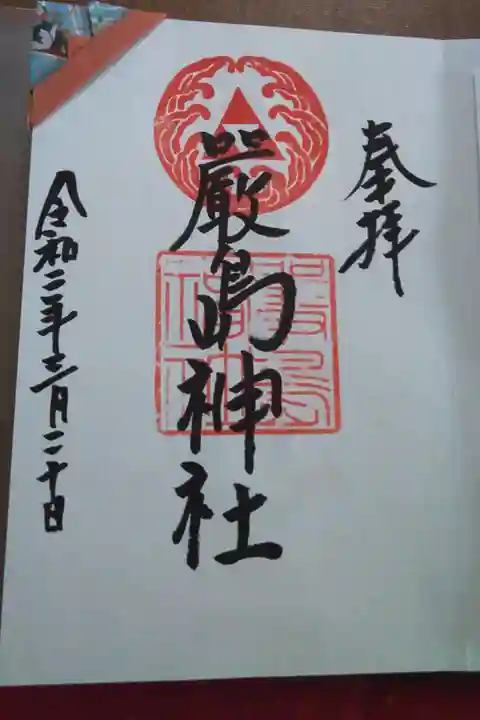 奉拝
嚴島神社
令和二年十二月二十日